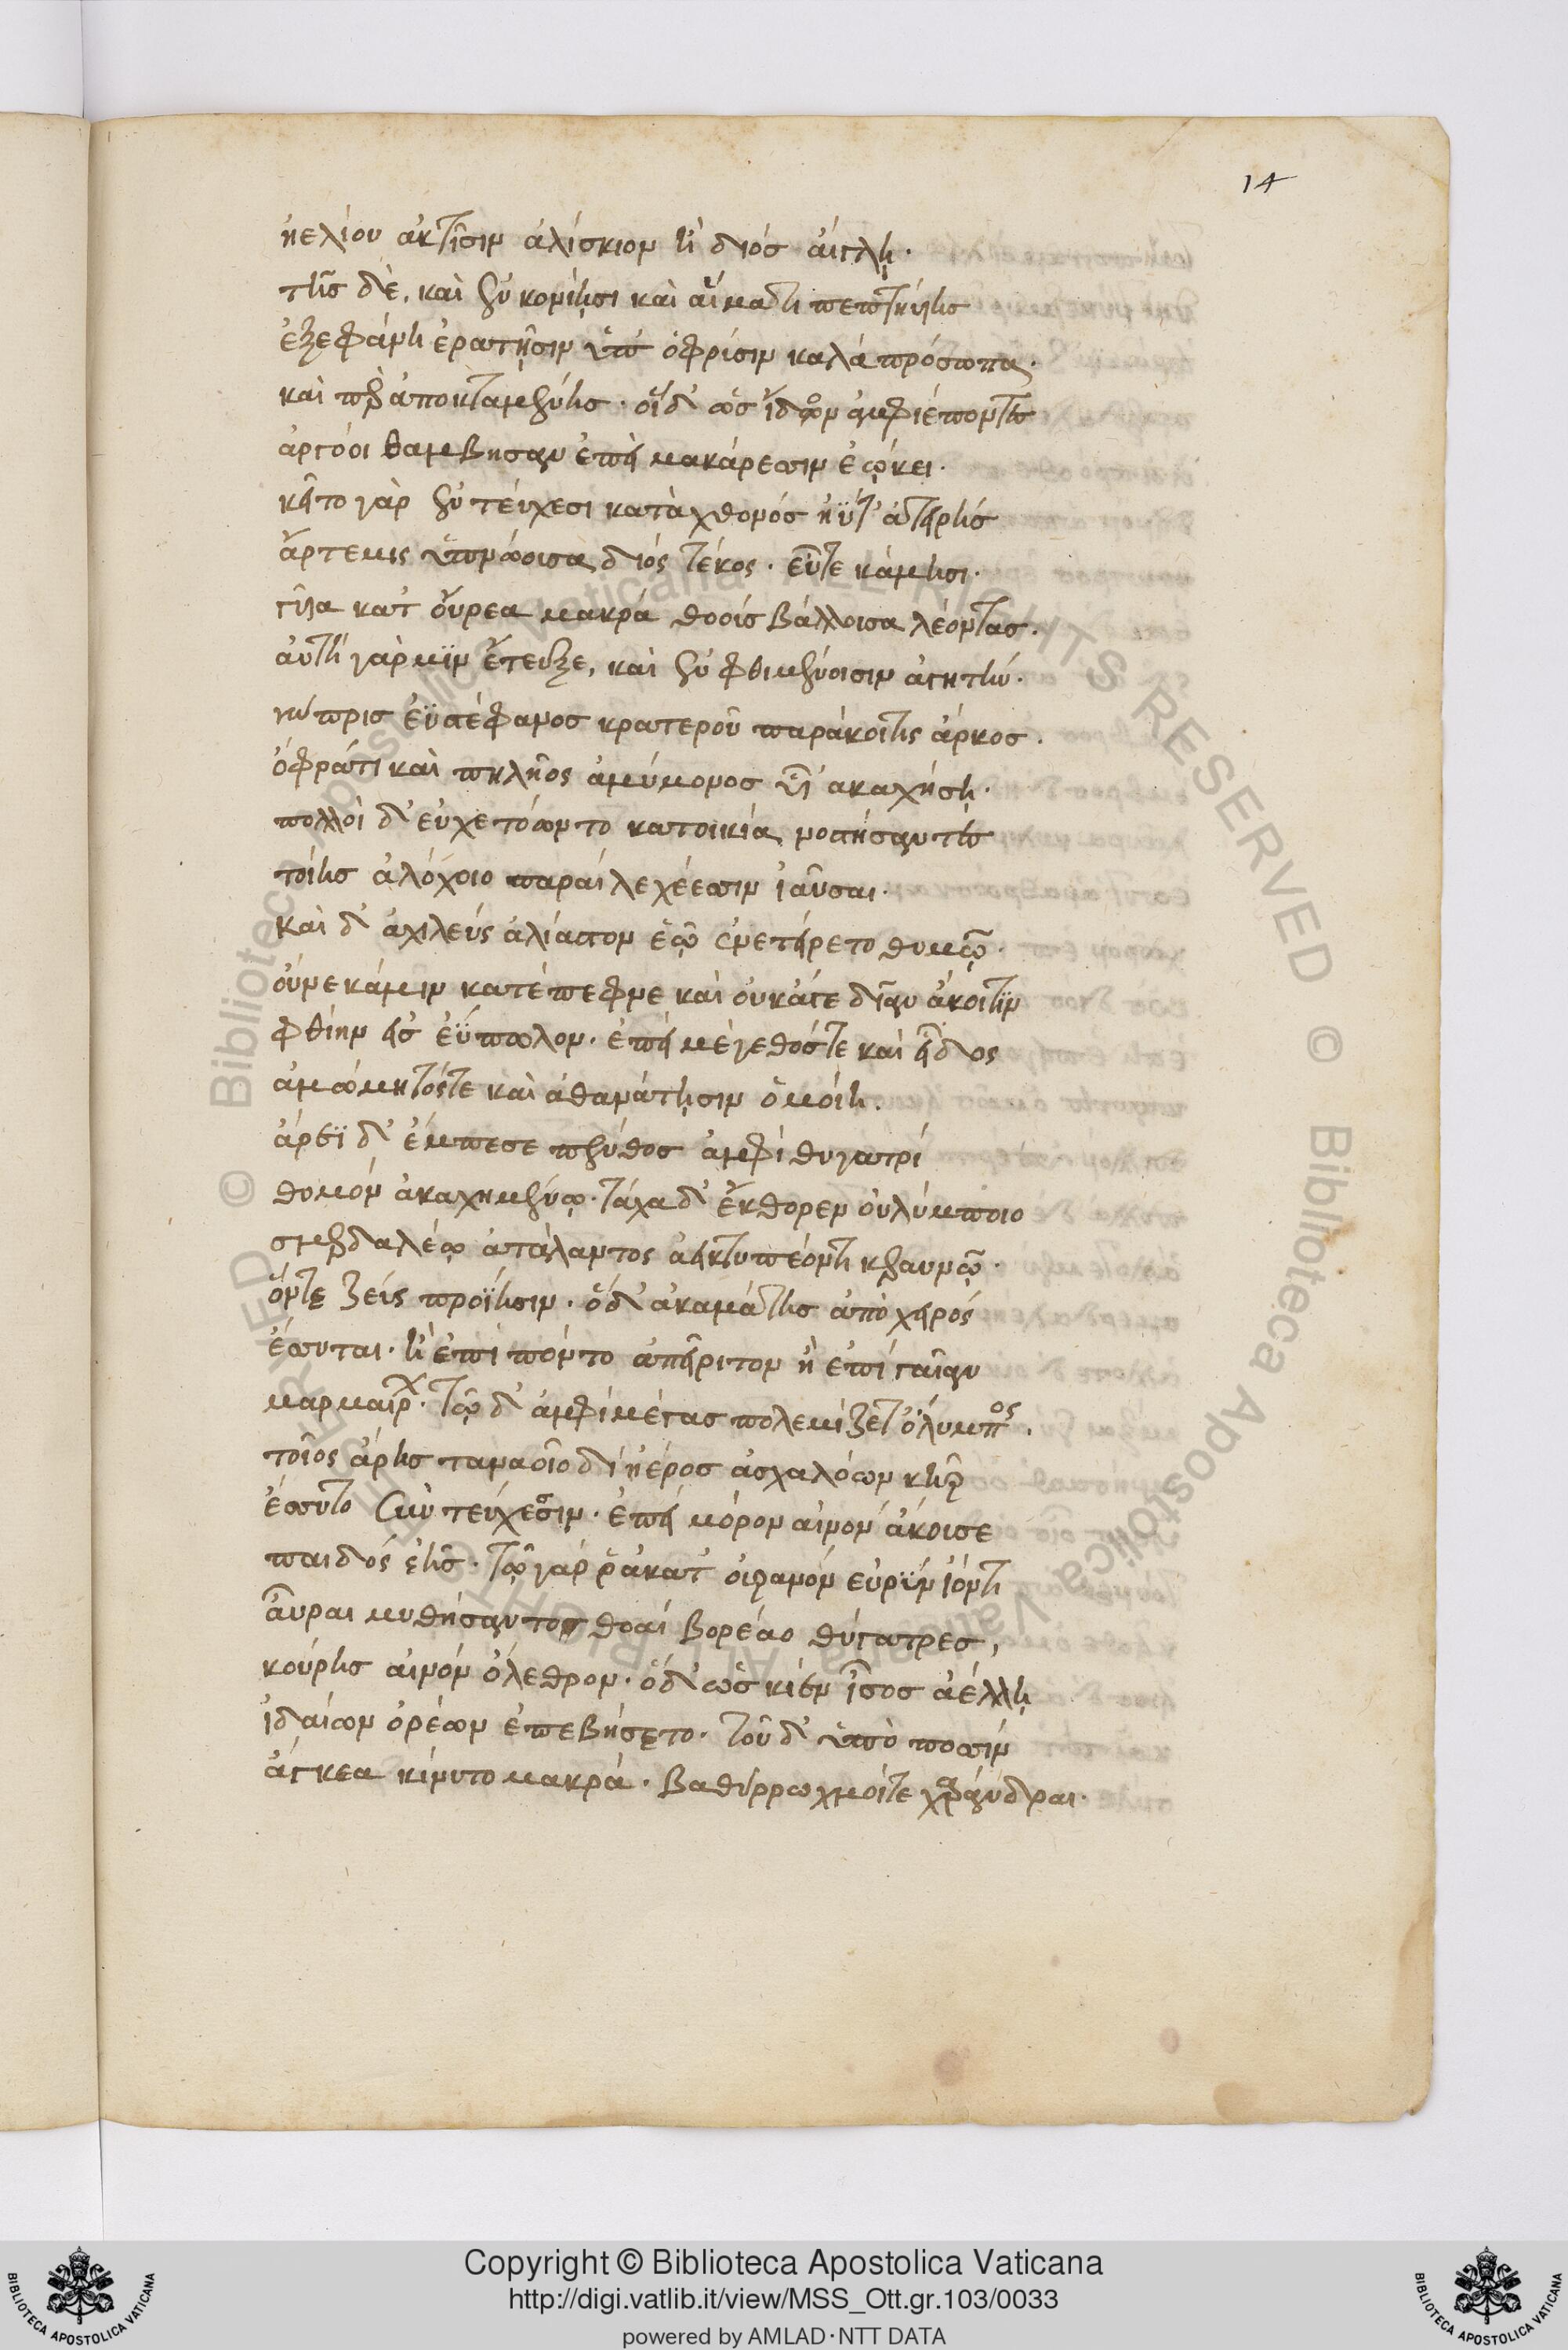 ἠελίου ἀκτῖσιν ἀλίσκιον ἢ διός αἴγλῃ·
τῆς δὲ, καὶ ἐν κονίῃσι καὶ αἵματι πεπτηυίης
ἐξεφάνη ἐρατῇσιν ὑπ' ὀφρύσιν καλὰ πρόσωπα·
καὶ περ ἀποκταμένης· οἵ δ' ὡς ἴδον ἀμφιέποντες
ἀργεῖοι θάμβησαν ἐπεὶ μακάρεσσιν ἐῴκει·
κεῖτο γὰρ ἐν τεύχεσι κατὰ χθονός ἠΰτ' ἀτειρής
ἄρτεμις ὑπνώοισα διός τέκος· εὖτε κάμησι·
γῦια κατ' οὔρεα μακρά θοοίς βάλλοισα λέοντας·
αὐτή γάρ μϊν ἔτευξε, καὶ ἐν φθιμένοισιν ἀγητὴν·
κύπρις ἐϋστέφανος κρατεροῦ παράκοιτις ἄρηος·
ὄφρά τι καὶ πηλῆος ἀμύμονος υἷ' ἀκαχήσῃ·
πολλοὶ δ' εὐχετόωντο κατοικία νοστήσαντες
τοίης ἀλόχοιο παραί λεχέεσσιν ἰαῦσαι·
καὶ δ' ἀχιλεύς ἀλίαστον ἑῷ ἐνετείρετο θυμῷ·
οὕνεκάμιν κατέπεφνε καὶ οὐκἄγε δῖαν ἄκοιτϊν
φθίην εἰς εὔπωλον· ἐπεὶ μέγεθόστε καὶ εἶδος
ἀμώμητόςτε καὶ ἀθανάτῃσιν ὁμοίη.
ἄρεϊ δ' ἔμπεσε πένθος ἀμφὶ θυγατρί
θυμόν ἀκαχημένῳ· τάχα δ' ἔκθορεν οὐλύμποιο
σμερδαλέῳ ἀτάλαντος ἀεικτυπέοντι κεραυνῷ·
ὅντε ζεύς προΐησιν· ὅδ' ἀκαμάτης ἀπὸ χειρός
ἔσσυται· ἢ ἐπὶ πόντο ἀπείριτον ἢ ἐπί γαῖαν
μαρμαίρων· τῷ δ' ἀμφί μέγας πολεμίζετ' ὄλυμπος·
τοῖος ἄρης ταναοῖο δι' ἠέρος ἀσχαλόων κῆρ
ἔσσυτο σὺν τεύχεσιν· ἐπεὶ μόρον αἰνόν ἄκοισε
παιδός ἑῆς· τῷ γάρ ῥα κατ' οὐρανόν εὐρύν ἰόντι
αὖραι μυθήσαντο θοαί βορέαο θύγατρες,
κούρης αἰνόν ὄλεθρον· ὅδ' ὡς κίεν ἶσος ἀέλλῃ
ἰδαίων ὀρέων ἐπεβήσετο· τοῦ δ' ὑπὸ ποσσίν
ἄγκεα κίνυτο μακρά· βαθύρρωχμοίτε χαράνδραι·
14
Copyright © Biblioteca Apostolica Vaticana
http://digi.vatlib.it/view/MSS_Ott.gr.103/0033
powered by AMLAD·NTT DATA
BIBLIOTECA APOSTOLICA VATICANA
BIBLIOTECA APOSTOLICA VATICANA
© Biblioteca Apostolica Vaticana ALL RIGHTS RESERVED © Biblioteca Apostolica Vaticana ALL RIGHTS RESERVED